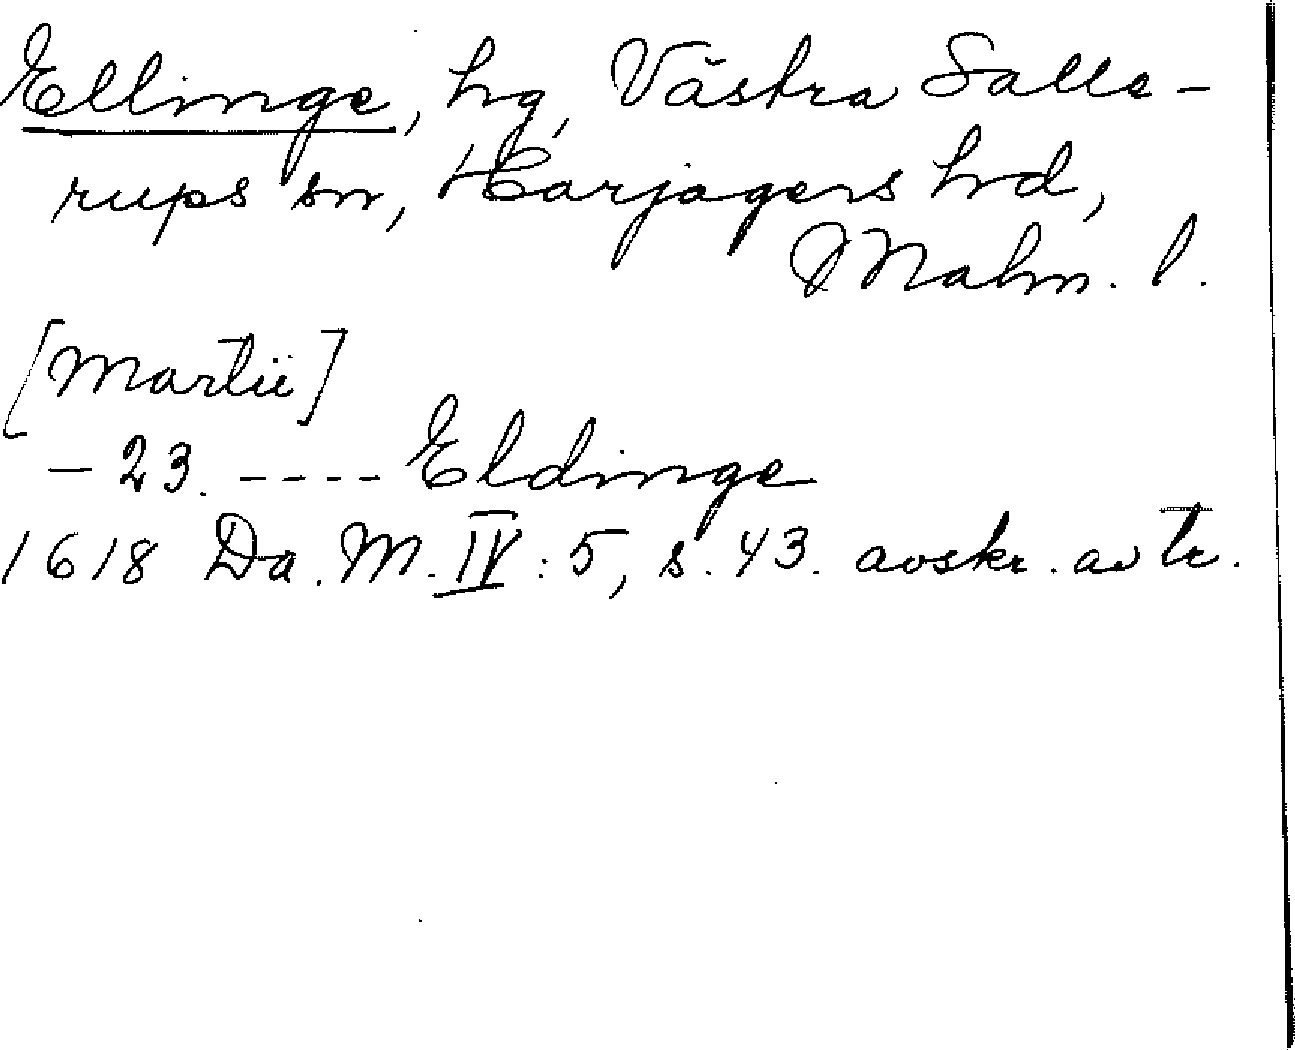 Ellinge, hg, Västra Salle-
rups sn, Harjagers hd,
Malm. l.
[Martii]
- 23. ---- Eldinge
1618 Da. M. IV : 5, s. 43. avskr. av tr.